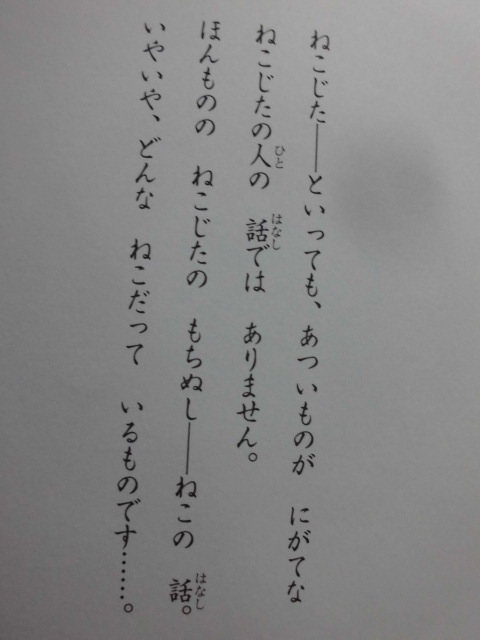 ねこじた――といっても、あついものが　にがてな
ねこじたの人の　話では　ありません。
ほんものの　ねこじたの　もちぬし――ねこの　話。
いやいや、どんな　ねこだって　いるものです……。